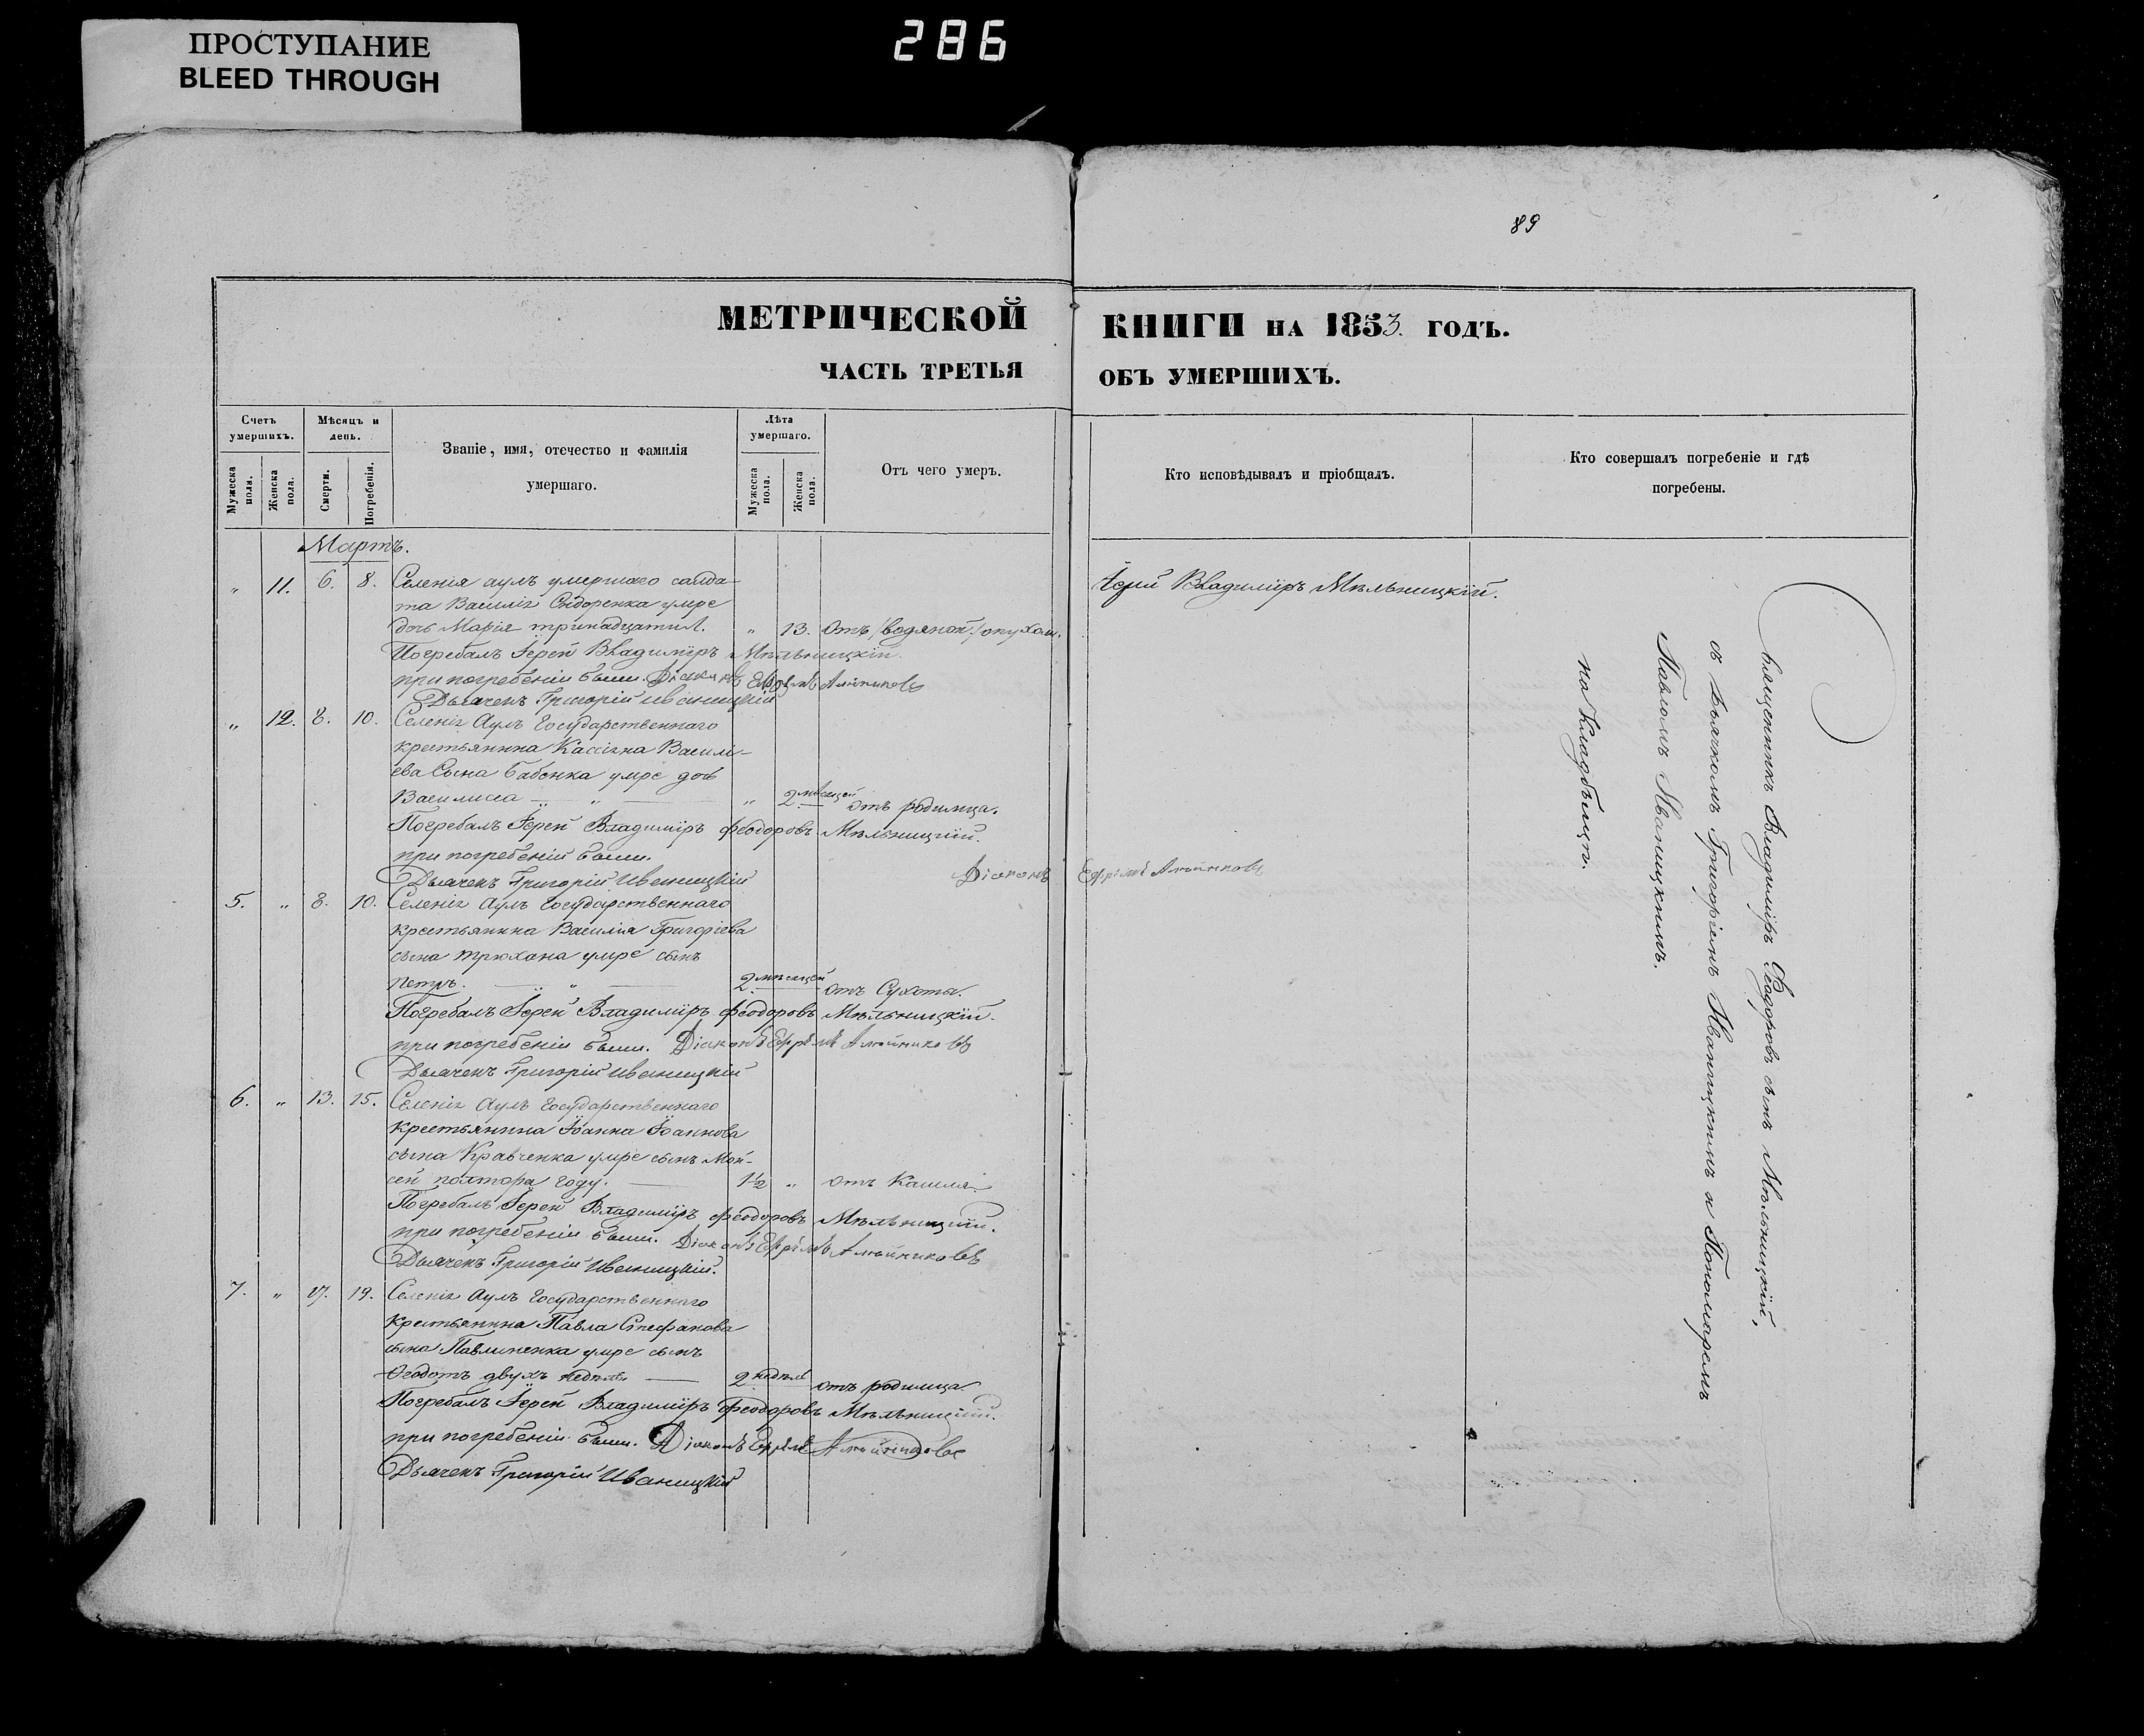 ПРОСТУПАНИЕ
BLEED THROUGH
286
89
МЕТРИЧЕСКОЙ КНИГИ НА 1853. ГОДЪ.
ЧАСТЬ ТРЕТЬЯ ОБЪ УМЕРШИХЪ.
Счетъ умершихъ.
Мужеска пола.
Женска пола.
Мѣсяцъ и день.
Смерти.
Погребенія.
Званіе, имя, отечество и фамилія
умершаго.
Лѣта умершаго.
Мужеска пола.
Женска пола.
Отъ чего умеръ.
Кто исповѣдывалъ и пріобщалъ.
Кто совершалъ погребеніе и гдѣ
погребены.
Мартъ.
„ 11. 6. 8. Селенія аулъ умершаго салда-
та Василія Сидоренка умре
дочь Марія тринадцати л. „ 13. отъ /водяной/ опухоли.
Погребалъ Іерей Владиміръ Мѣльницкій.
при погребеніи были. Діаконъ Ефремъ
Дьячекъ Григорій Иваницкій
„ 12. 8. 10. Селенія Аулъ Государственнаго
крестьянина Кассіяна Василі-
ева Сына Бабенка умре дочь
Василисса „ „ 2 мѣсяцей отъ родимца.
Погребалъ Іерей Владиміръ Феодоровъ Мѣльницкій.
при погребеніи были.
Дьячекъ Григорій Иваницкій Діаконъ Ефремъ
5. „ 8. 10. Селенія Аулъ Государственнаго
крестьянина Василія Григоріева
сына Трюхана умре сынъ
Петръ. „ 2 мѣсяцей отъ Сухоты.
Погребалъ Іерей Владиміръ Феодоровъ Мѣльницкій.
при погребеніи были. Діаконъ Ефремъ
Дьячекъ Григорій Иваницкій
6. „ 13. 15. Селенія Аулъ Государственнаго
крестьянина Іоанна Іоаннова
сына Кравченка умре сынъ Мои-
сей полтора году. 1½ „ отъ Кашля.
Погребалъ Іерей Владиміръ Феодоровъ Мѣльницкій.
при погребеніи были. Діаконъ Ефремъ
Дьячекъ Григорій Иваницкій.
7. „ 17. 19. Селенія Аулъ Государственнаго
крестьянина Павла Стефанова
сына Павлиненка умре сынъ
Ѳеодотъ двухъ недѣль. 2 недѣль отъ родимца.
Погребалъ Іерей Владиміръ Феодоровъ Мѣльницкій.
при погребеніи были. Діаконъ Ефремъ
Дьячекъ Григорій Иваницкій
Іерей Владиміръ Мѣльницкій.
Священникъ Владиміръ Феодоровъ сынъ Мѣльницкій,
съ Дьячкомъ Григоріемъ Иваницкимъ и Пономаремъ
Павломъ Иваницкимъ.
на кладбищѣ.